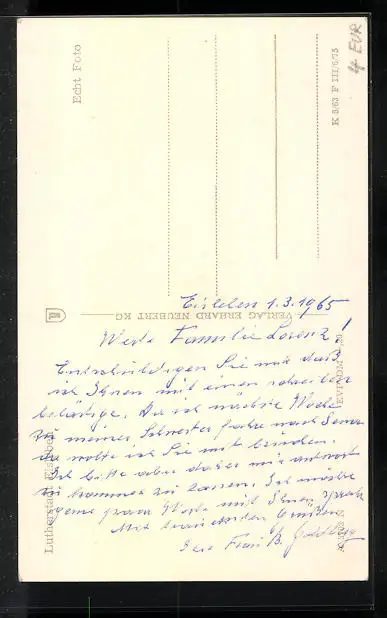 Echt Foto
K 5/63 F III/6/75
4 EUR
VERLAG ERHARD NEUBERT KG
Lutherstadt Eisleben
Eisleben 1.3.1965
Werte Familie Lorenz!
Entschuldigen Sie mich daß
ich Ihnen mit einen schreiben
belästige. Da ich nächste Woche
zu meiner Schwester fahre nach
da wollte ich Sie mit besuchen.
Ich bitte aber daher mir antwort
zu kommen zu lassen. Ich möchte
gerne paar Worte mit Ihnen sprech
Mit Grüßen
Frau B.